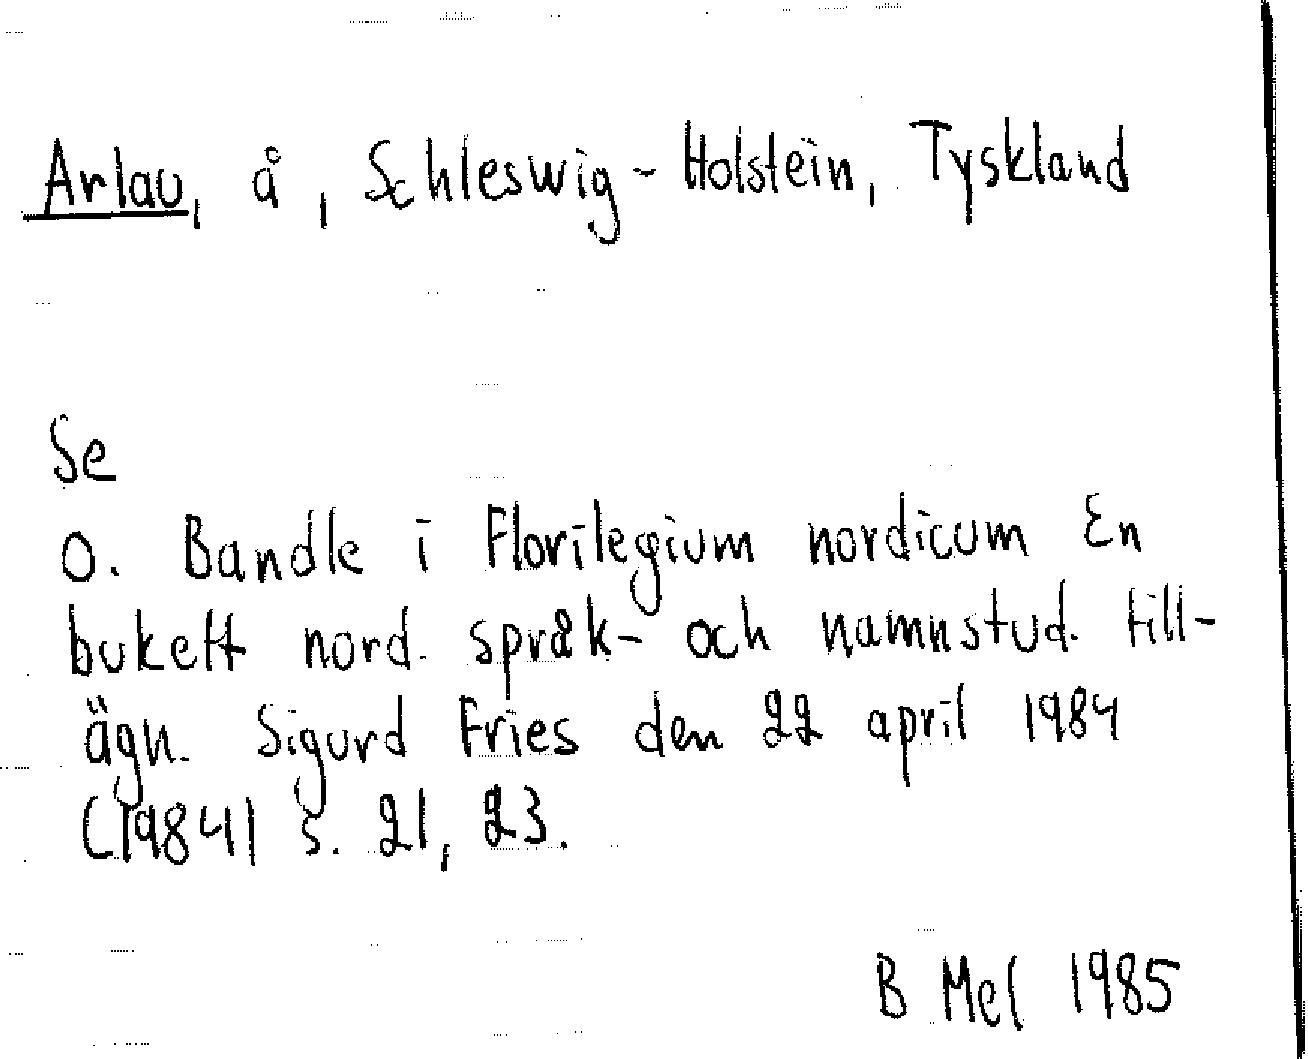 Arlau, å, Schleswig-Holstein, Tyskland
Se
O. Bandle i Florilegium nordicum En
bukett nord. språk- och namnstud. till-
ägn. Sigurd Fries den 22 april 1984
(1984) s. 21, 23.
B Mel 1985